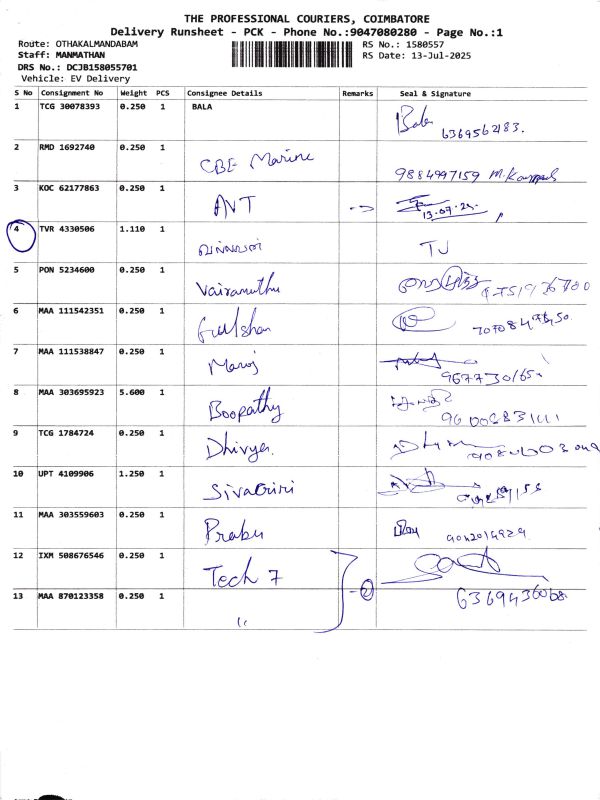 THE PROFESSIONAL COURIERS, COIMBATORE
Delivery Runsheet - PCK - Phone No.:9047080280 - Page No.:1
Route: OTHAKALMANDABAM
Staff: MANMATHAN
DRS No.: DCJB158055701
Vehicle: EV Delivery
RS No.: 1580557
RS Date: 13-Jul-2025
S No Consignment No Weight PCS Consignee Details Remarks Seal & Signature
1 TCG 30078393 0.250 1 BALA Bala 6369562183.
2 RMD 1692740 0.250 1 CBE Marine 9884997159
3 KOC 62177863 0.250 1 ANT 13.07.25
4 TVR 4330506 1.110 1 TJ
5 PON 5234600 0.250 1 Vairamuthu
6 MAA 111542351 0.250 1 Gulshan
7 MAA 111538847 0.250 1 Manoj
8 MAA 303695923 5.600 1 Boopathy
9 TCG 1784724 0.250 1 Dhivya.
10 UPT 4109906 1.250 1 SivaGiri
11 MAA 303559603 0.250 1 Prabu
12 IXM 508676546 0.250 1 Tech 7
2
13 MAA 870123358 0.250 1 "